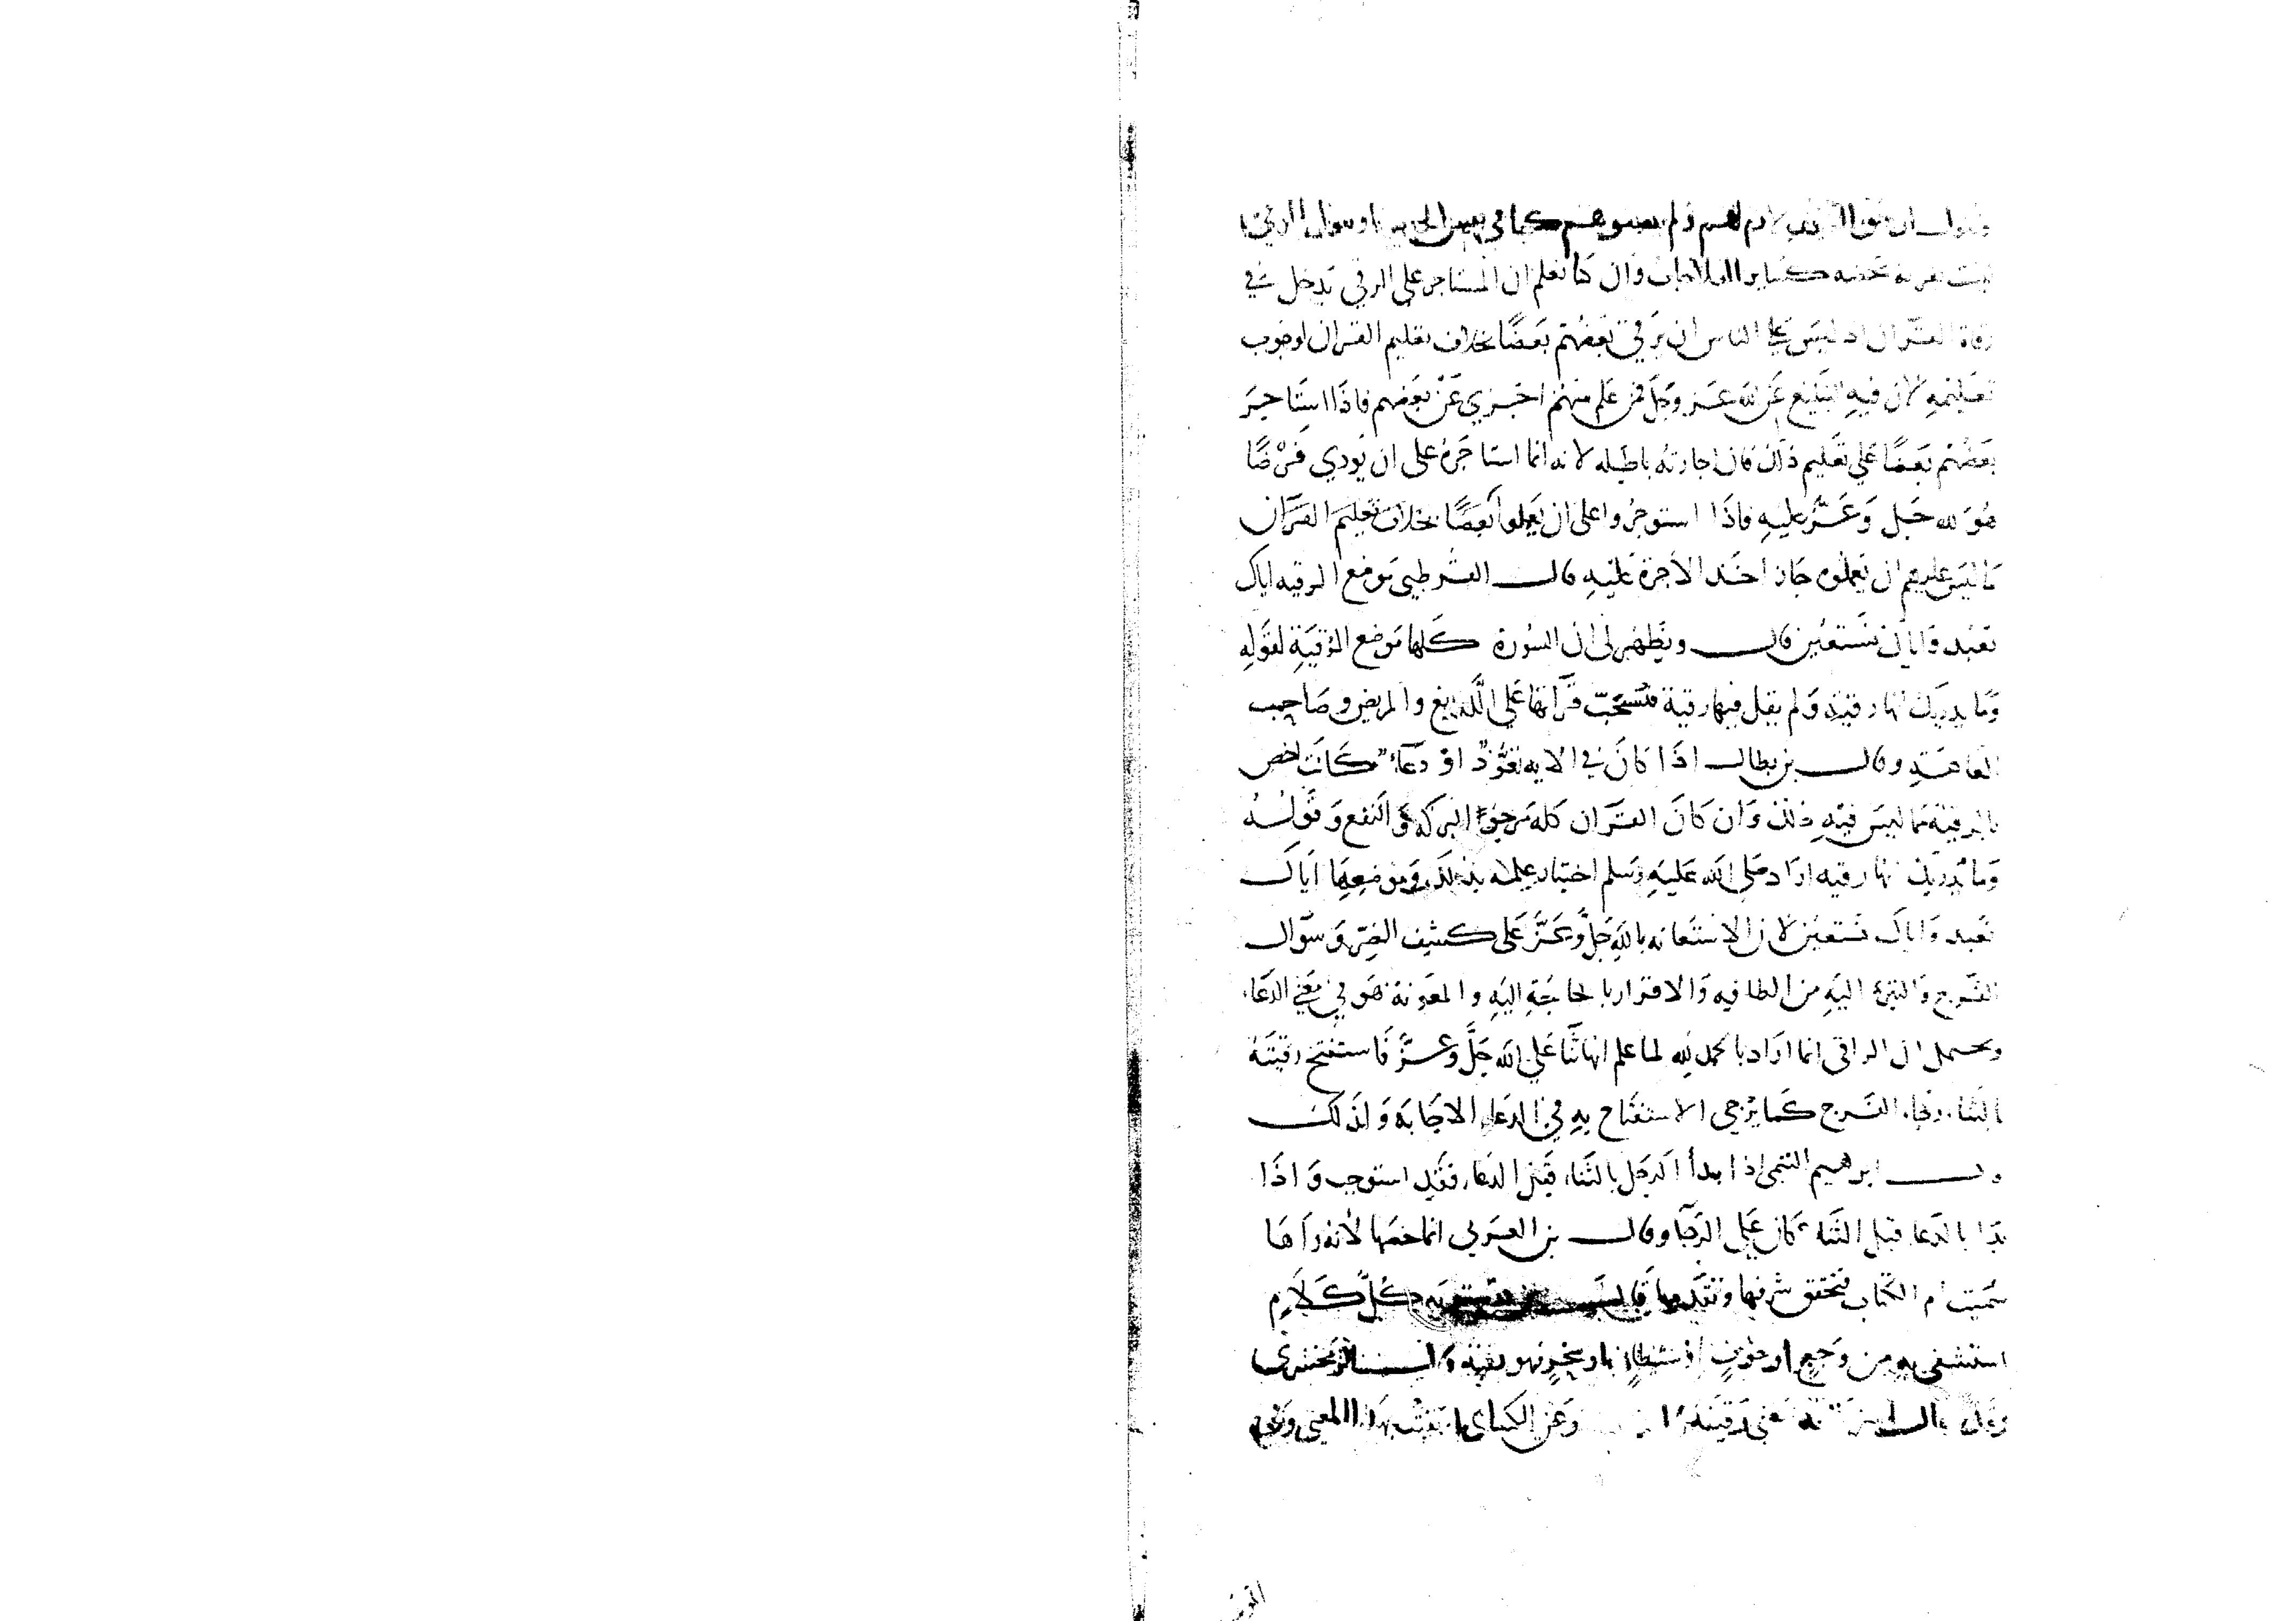 حق الضيف لازم لهم ولم كما في او نقول ان الرقي
ليست بقربة محضة كسائر العلاجات وان كنا نعلم ان المستاجر على الرقي يدخل في
رقاه القرآن اذ ليس على الناس ان يرقي بعضهم بعضًا بخلاف تعليم القران لوجوب
تعليمه لان فيه التبليغ عن الله عز وجل فمن علم منهم اجزي عن بعضهم فاذا استاجر
بعضهم بعضًا على تعليم ذلك فان اجارته باطله لانه انما استاجره على ان يودي فرضًا
هو لله جل وعز عليه فاذا استوجروا على ان يعلموا بعضًا بخلاف تعليم القران
ما ليس عليهم ان يعملوه جاز اخذ الاجرة عليه قال القرطبي موضع الرقيه اياك
نعبد واياك نستعين قال ويظهر لي ان السورة كلها موضع الرقية لقوله
وما يدريك انها رقية ولم يقل فيها رقية فتستحب قرآتها على اللديغ والمريض وصاحب
العاهة وقال بن بطال اذا كان في الايه تعوذ او دعآء كانت اخص
بالرقية مما ليس فيه ذلك وان كان القران كله مرجو البركه والنفع وقوله
وما يدريك انها رقيه اراد صلى الله عليه وسلم اختبار علمه بذلك وموضعها اياك
نعبد واياك نستعين لان الاستعانه بالله جل وعز على كشف الضر وسوال
الفرج والتبرء اليه من الطاقه والاقرار بالحاجة اليه والمعونة هو في معنى الدعاء
ويحتمل ان الراقي انما اراد بالحمد لله لما علم انها ثنا على الله جل وعز فاستفتح رقيته
بالثناء رجاء الفرج كما يرجى الاستفتاح به في الدعاء الاجابه ولذلك
قال ابرهيم التيمي اذا بدأ الرجل بالثناء قبل الدعاء فقد استوجب واذا
بدا بالدعا قبل الثناء كان على الرجا وقال بن العربي انما خصها لانه رآها
سميت ام الكتاب فتحقق شرفها وتقدمها قال كل كلام
استشفى به من وجع او خوف او شيطان او سحر فهو رقية قال الزمخشري
وقد يقال يعني رقيته وعن الكسائي بهذا المعنى